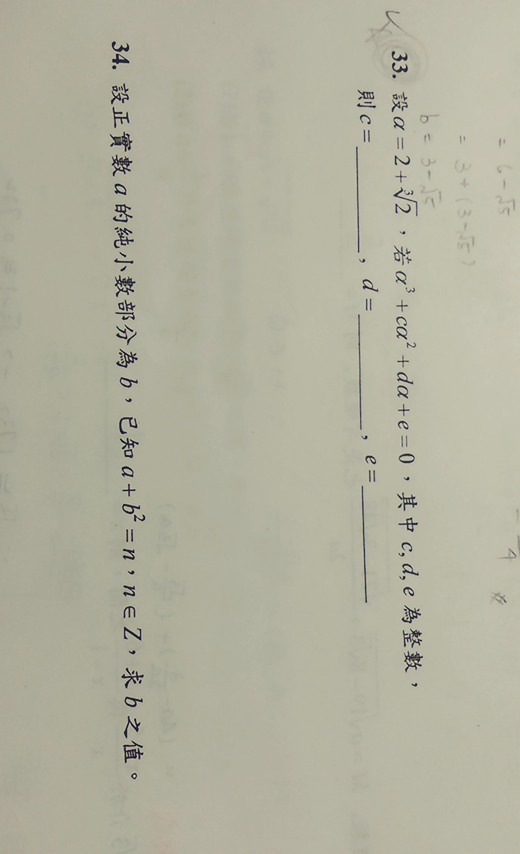 = 6-√5
= 3+(3-√5)
b = 3-√5
33. 設α=2+∛2，若α³+cα²+dα+e=0，其中c,d,e為整數，
則c=________，d=________，e=________
34. 設正實數a的純小數部分為b，已知a+b²=n，n∈Z，求b之值。